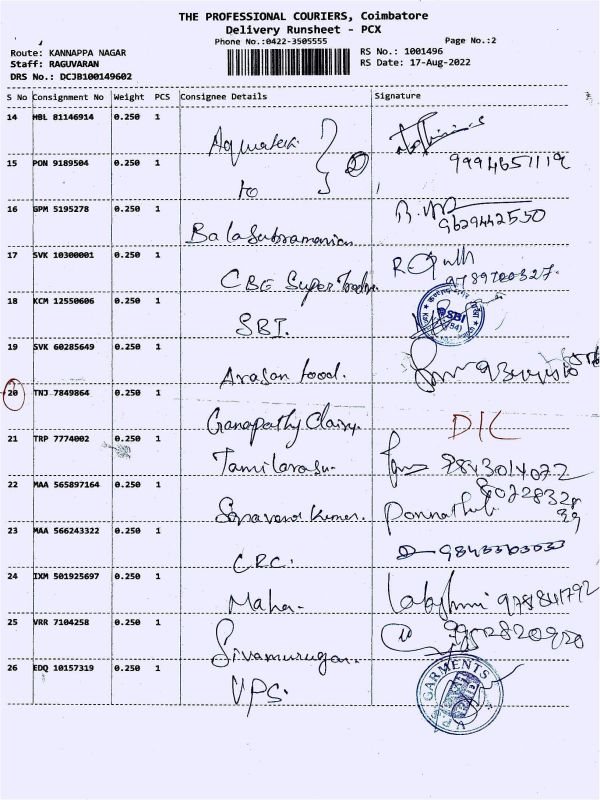 THE PROFESSIONAL COURIERS, Coimbatore
Delivery Runsheet - PCX
Phone No.:0422-3505555
Page No.:2
Route: KANNAPPA NAGAR
RS No.: 1001496
Staff: RAGUVARAN
RS Date: 17-Aug-2022
DRS No.: DCJB100149602
S No Consignment No Weight PCS Consignee Details Signature
14 MBL 81146914 0.250 1
Aquatek
15 PON 9189504 0.250 1
9994657119
to
16 GPM 5195278 0.250 1
9629442550
Balasubramanian
17 SVK 10300001 0.250 1
9789700327
CBE Super
18 KCM 12550606 0.250 1
SBI
SBI.
19 SVK 60285649 0.250 1
Arasan food.
20 TNJ 7849864 0.250 1
Ganapathy
D/C
21 TRP 7774002 0.250 1
Tamilarasu. 9843014072
22 MAA 565897164 0.250 1
Saravana Kumar.
23 MAA 566243322 0.250 1
CRC.
24 IXM 501925697 0.250 1
Maha.
25 VRR 7104258 0.250 1
9952820920
Sivamurugan.
26 EDQ 10157319 0.250 1
VPS.
GARMENTS